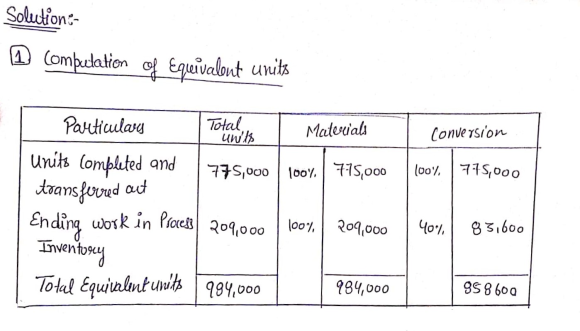 Solution:-
1 Computation of Equivalent units
Particulars Total units Materials Conversion
Units Completed and transferred out 775,000 100% 775,000 100% 775,000
Ending work in Process Inventory 209,000 100% 209,000 40% 83,600
Total Equivalent units 984,000 984,000 858600